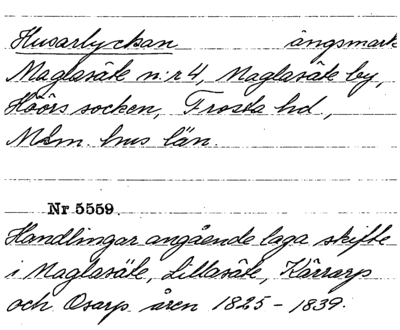 Husarlyckan ängsmark
Maglasäte n:r 4, Maglasäte by,
Höörs socken, Frosta hd.,
Mlm. hus län.
Nr 5559.
Handlingar angående laga skifte
i Maglasäte, Lillasäte, Kärrarp
och Osarp åren 1825-1839.